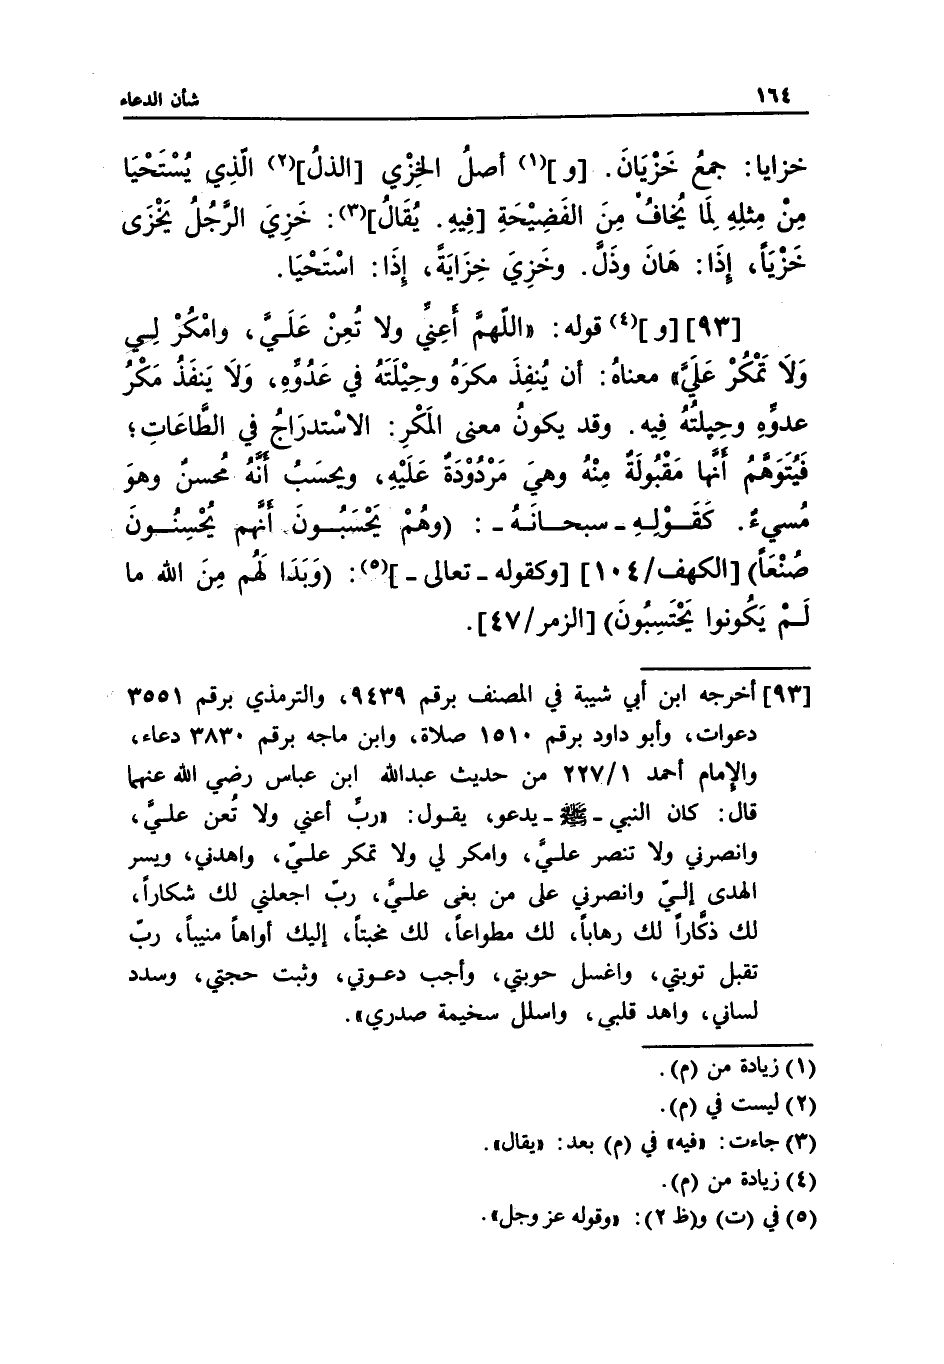 ١٦٤ شأن الدعاء
خزايا: جمعُ خَزْيَانَ. [و](١) أصلُ الخِزْي [الذلُ](٢) الَّذِي يُسْتَحْيَا
مِنْ مِثلِهِ لِمَا يُخافُ مِنَ الفَضِيْحَةِ [فِيهِ. يُقَالُ](٣): خَزِيَ الرَّجُلُ يَخْزَى
خَزْيَاً، إِذَا: هَانَ وذَلَّ. وخَزِيَ خِزَايَةً، إِذَا: اسْتَحْيَا.
[٩٣] [و](٤) قوله: «اللّهمَّ أَعِنِّي ولا تُعِنْ عَلَيَّ، وامْكُرْ لِي
وَلَا تَمْكُرْ عَلَيَّ» معناهُ: أن يُنفِذَ مكرَهُ وحِيْلَتَهُ في عَدُوِّهِ، وَلَا يَنفَذُ مَكْرُ
عدوِّهِ وحِيلتُهُ فِيه. وقد يكونُ معنى المَكْرِ: الاسْتدرَاجُ في الطَّاعَاتِ؛
فَيُتَوَهَّمُ أَنَّها مَقْبُولَةٌ مِنْهُ وهيَ مَرْدُوْدَةٌ عَلَيْهِ، ويحسَبُ أَنَّهُ محُسنٌ وهوَ
مُسيءٌ. كَقَوْلِهِ ـ سبحانَهُ ـ : (وهُمْ يَحْسَبُونَ أَنَّهم يُحْسِنُونَ
صُنْعَاً) [الكهف/١٠٤] [وكقوله ـ تعالى ـ](٥): (وَبَدَا لَهُم مِنَ الله ما
لَمْ يَكُونوا يَحْتَسِبُونَ) [الزمر/٤٧].
[٩٣] أخرجه ابن أبي شيبة في المصنف برقم ٩٤٣٩، والترمذي برقم ٣٥٥١
دعوات، وأبو داود برقم ١٥١٠ صلاة، وابن ماجه برقم ٣٨٣٠ دعاء،
والإمام أحمد ٢٢٧/١ من حديث عبدالله ابن عباس رضي الله عنهما
قال: كان النبي ـ ﷺ ـ يدعو، يقول: «ربِّ أعني ولا تُعن عليَّ،
وانصرني ولا تنصر عليَّ، وامكر لي ولا تمكر عليّ، واهدني، ويسر
الهدى إليّ وانصرني على من بغى عليَّ، ربّ اجعلني لك شكاراً،
لك ذكَّاراً لك رهاباً، لك مطواعاً، لك مخبتاً، إليك أواهاً منيباً، ربّ
تقبل توبتي، واغسل حوبتي، وأجب دعوتي، وثبت حجتي، وسدد
لساني، واهد قلبي، واسلل سخيمة صدري».
(١) زيادة من (م).
(٢) ليست في (م).
(٣) جاءت: «فيه» في (م) بعد: «يقال».
(٤) زيادة من (م).
(٥) في (ت) و(ظ ٢): «وقوله عز وجل».